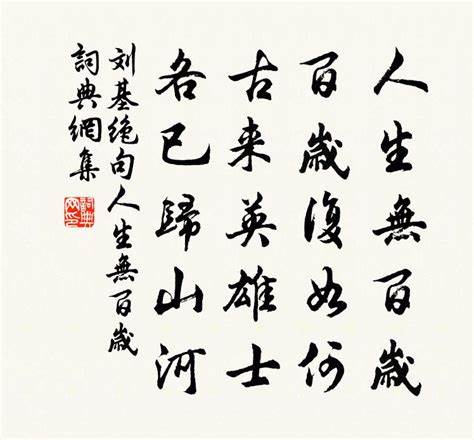 人生無百歲
百歲復如何
古来英雄士
各已歸山河
刘基绝句人生無百歲
詞典網集
詞典
网印